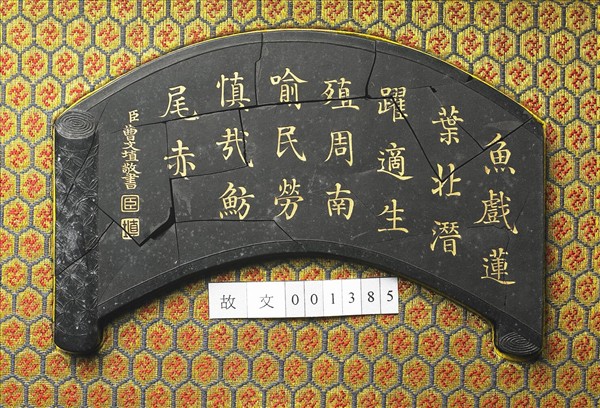 魚戲蓮
葉北潛
躍適生
殖周南
喻民勞
慎哉魴
尾赤
臣曹文埴敬書
臣
埴
故文001385